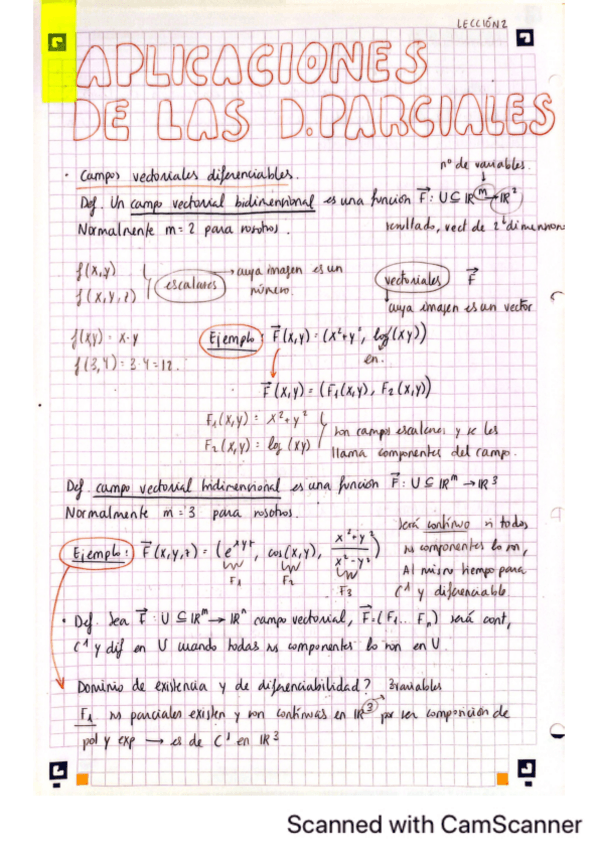 LECCIÓN 2
APLICACIONES
DE LAS D.PARCIALES
· Campos vectoriales diferenciables.
nº de variables.
Def. Un campo vectorial bidimensional es una función F⃗: U⊆ℝᵐ→ℝ²
Normalmente m=2 para nosotros.
resultado, vect de 2 dimension
f(x,y)
f(x,y,z)
escalares
→ cuya imagen es un
número.
vectoriales F⃗
cuya imagen es un vector
f(x,y) = x·y
f(3,4) = 3·4 = 12.
Ejemplo: F⃗(x,y) = (x²+y², log(xy))
en.
F⃗(x,y) = (F₁(x,y), F₂(x,y))
F₁(x,y) = x²+y²
F₂(x,y) = log(xy)
son campos escalares y se les
llama componentes del campo.
Def. campo vectorial tridimensional es una función F⃗: U⊆ℝᵐ→ℝ³
Normalmente m=3 para nosotros.
Ejemplo: F⃗(x,y,z) = (eˣʸᶻ, cos(x,y), x²+y²/x²-y²)
F₁ F₂ F₃
Será continuo si todas
sus componentes lo son,
Al mismo tiempo para
C¹ y diferenciable
· Def. Sea F⃗: U⊆ℝᵐ→ℝⁿ campo vectorial, F⃗=(F₁... Fₙ) será cont,
C¹ y dif en U cuando todas sus componentes lo son en U.
Dominio de existencia y de diferenciabilidad? 3 variables
F₁ sus parciales existen y son continuas en ℝ³ por ser composición de
pol y exp → es de C¹ en ℝ³
Scanned with CamScanner